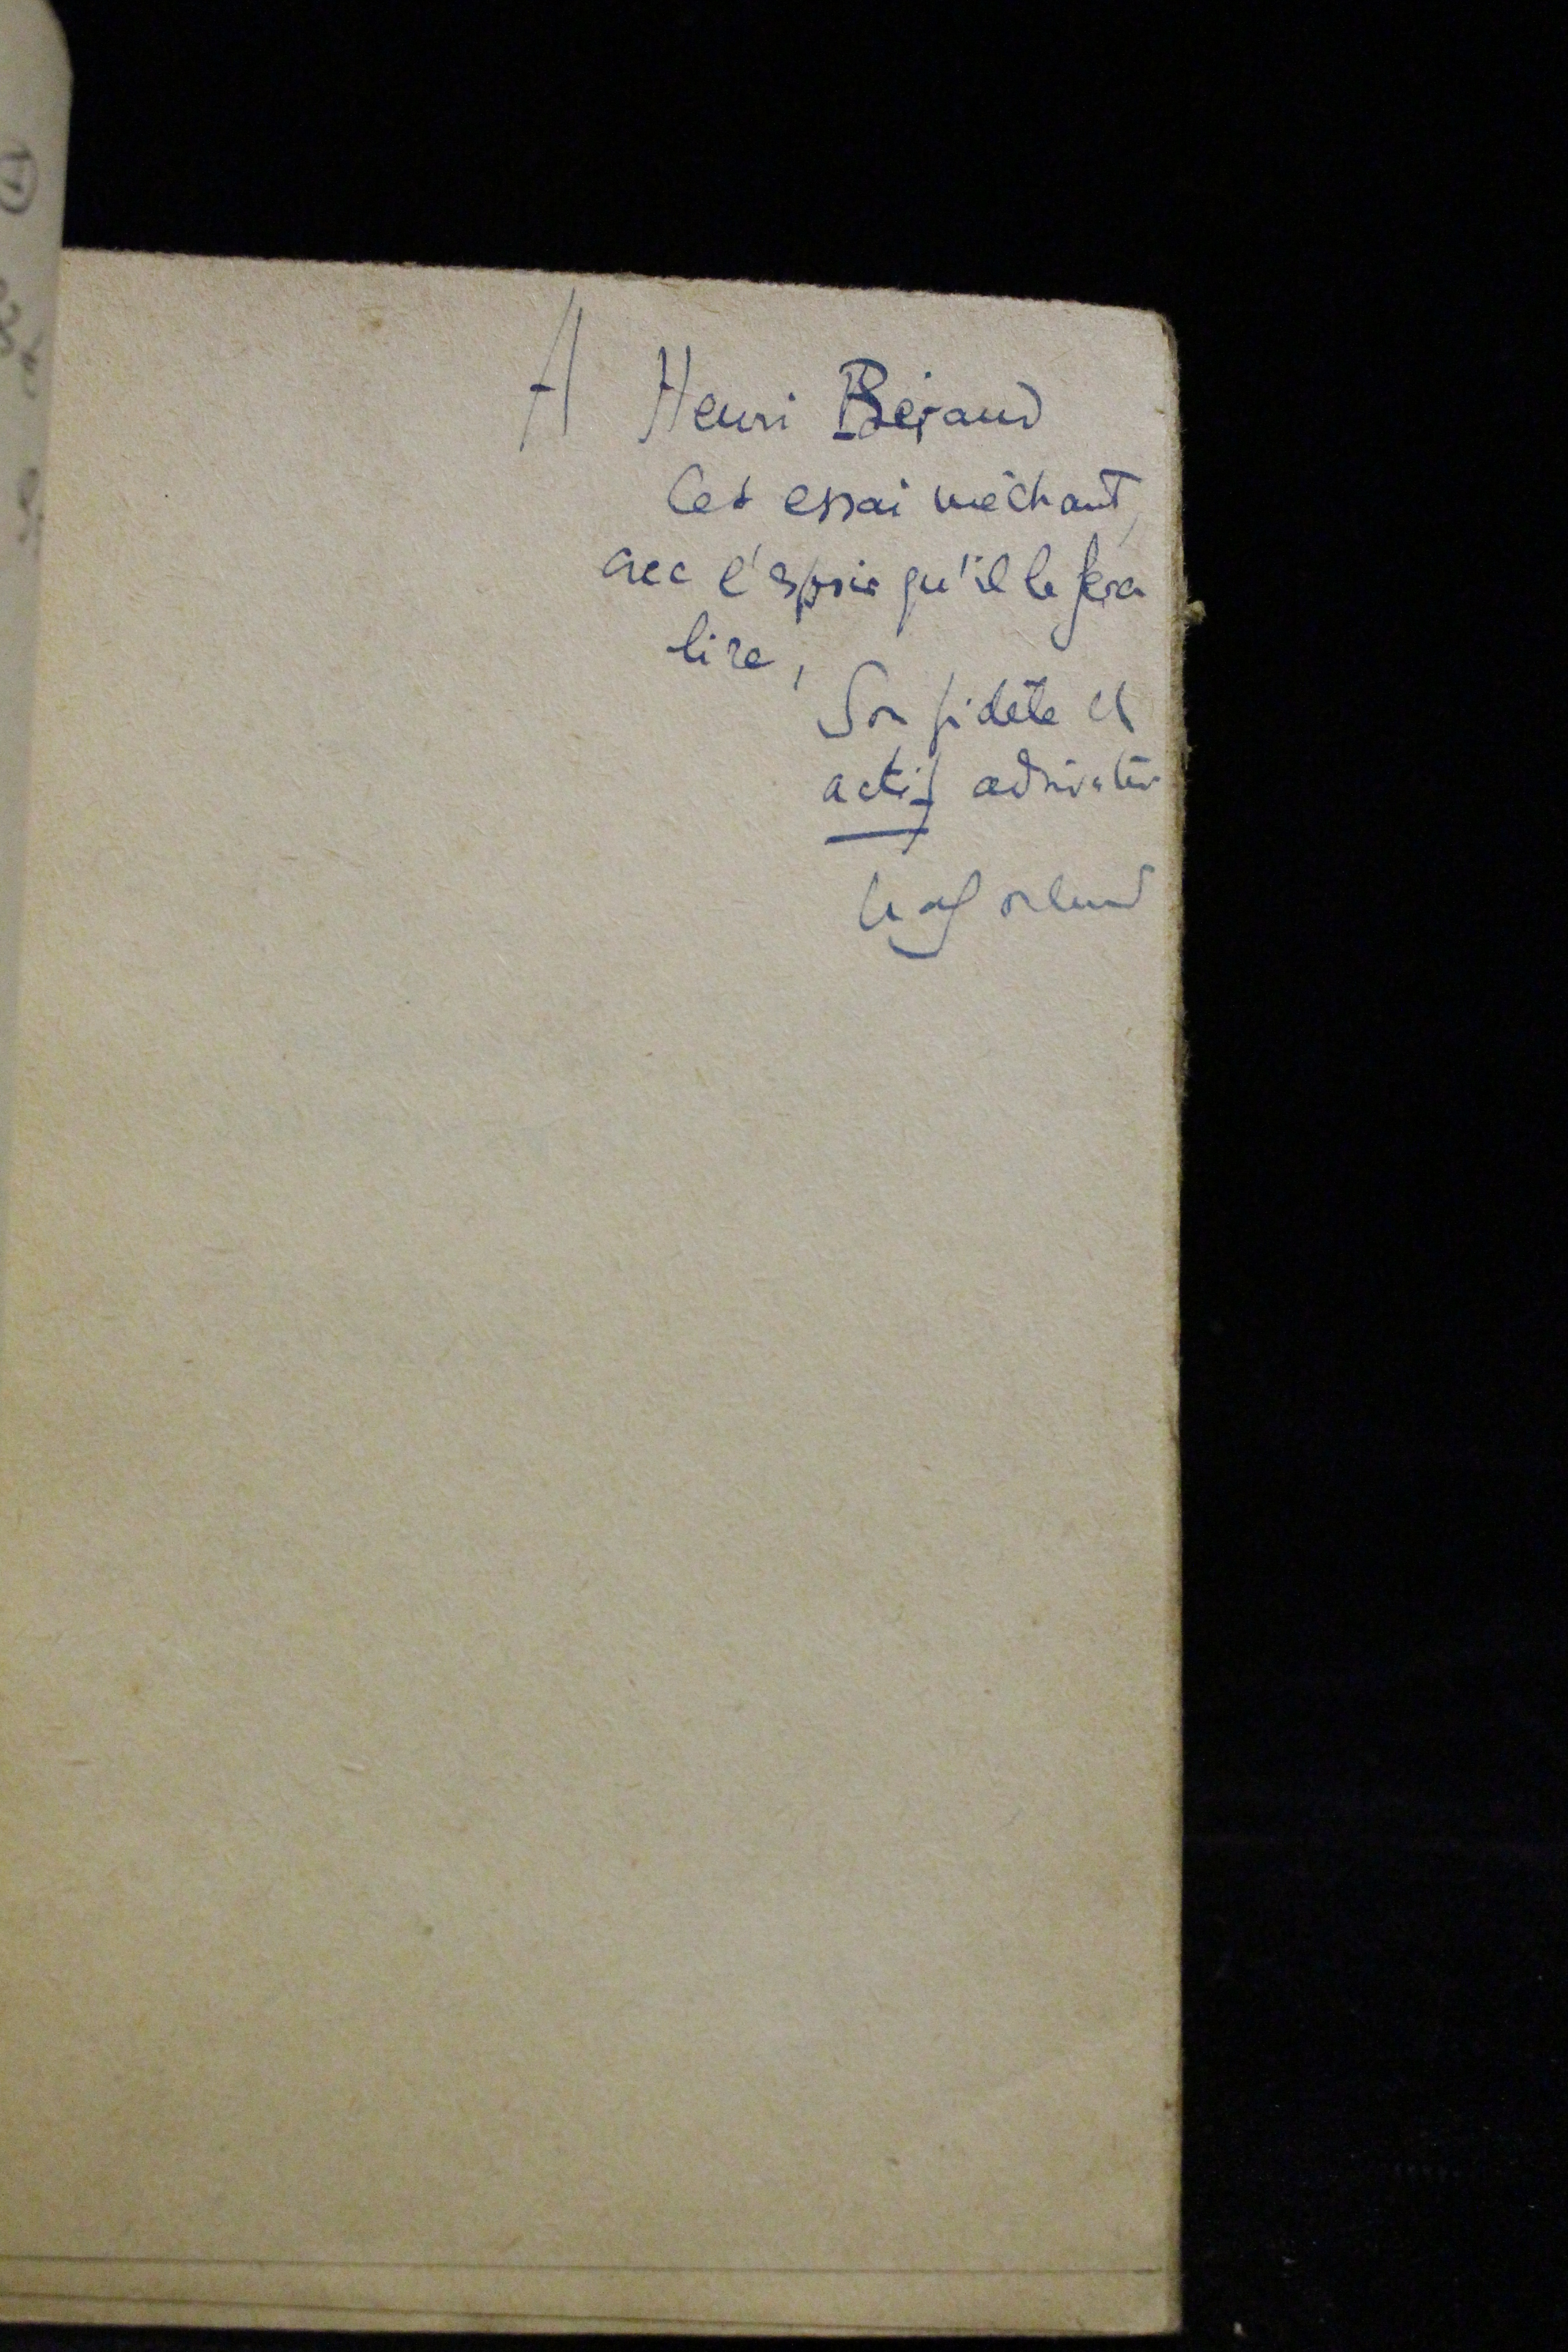 A Henri Béraud
Cet essai méchant,
avec l'espoir qu'il le fera
lire,
Son fidèle et
actif admirateur